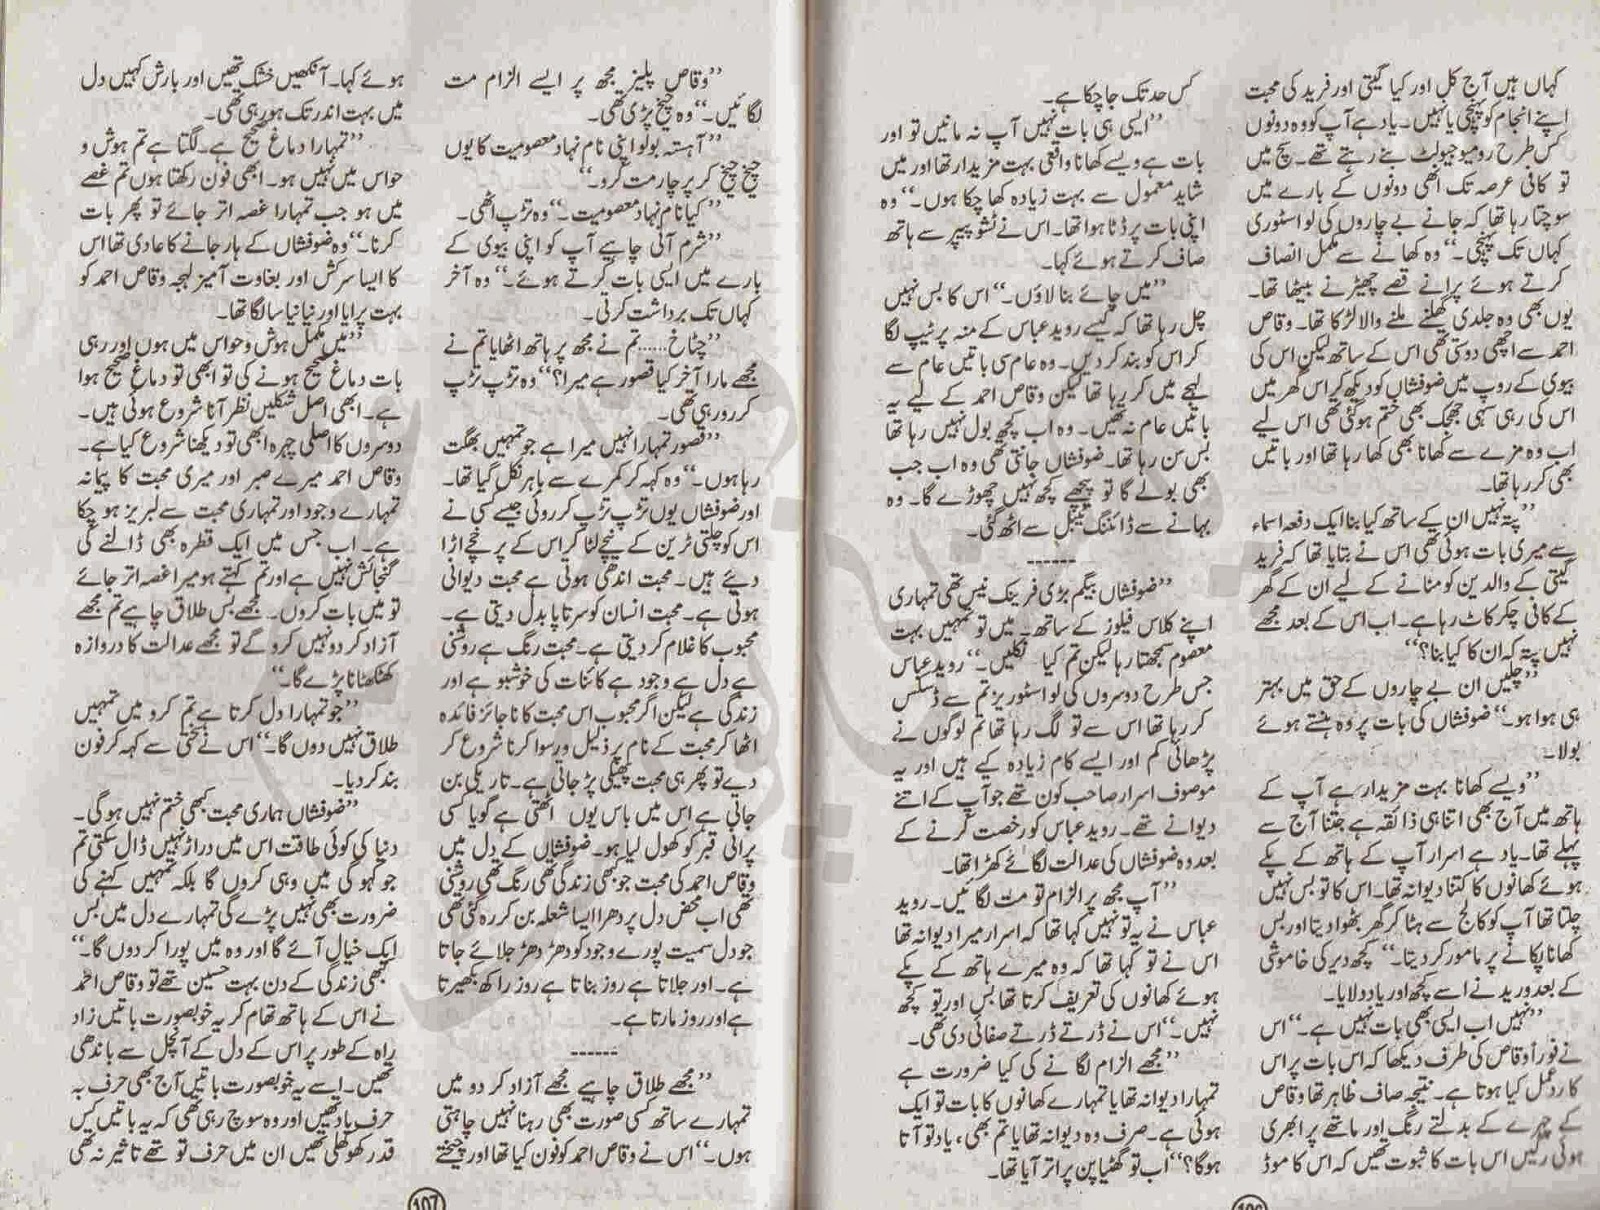 کہاں ہیں آج کل اور کیا گیتی اور فرید کی محبت
اپنے انجام کو پہنچی یا نہیں۔ یاد ہے آپ کو وہ دونوں
کس طرح رومیو جیولٹ بنے رہتے تھے۔ سچ میں
تو کافی عرصہ تک انھی دونوں کے بارے میں
سوچتا رہا تھا کہ جانے بے چاروں کی لو اسٹوری
کہاں تک پہنچی۔“ وہ کھانے سے مکمل انصاف
کرتے ہوئے پرانے قصے چھیڑنے بیٹھا تھا۔
یوں بھی وہ جلدی گھلنے ملنے والا لڑکا تھا۔ وقاص
احمد سے اچھی دوستی تھی اس کے ساتھ لیکن اس کی
بیوی کے روپ میں ضوفشاں کو دیکھ کر اس گھر میں
اس کی رہی سہی جھجک بھی ختم ہو گئی تھی اس لیے
اب وہ مزے سے کھانا بھی کھا رہا تھا اور باتیں
بھی کر رہا تھا۔
”پتہ نہیں ان کے ساتھ کیا بنا ایک دفعہ اسماء
سے میری بات ہوئی تھی اس نے بتایا تھا کہ فرید
گیتی کے والدین کو منانے کے لیے ان کے گھر
کے کافی چکر کاٹ رہا ہے۔ اب اس کے بعد مجھے
نہیں پتہ کہ ان کا کیا بنا؟“
”چلیں ان بے چاروں کے حق میں بہتر
ہی ہوا ہو۔“ ضوفشاں کی بات پر وہ ہنستے ہوئے
بولا۔
”ویسے کھانا بہت مزیدار ہے آپ کے
ہاتھ میں آج بھی اتنا ہی ذائقہ ہے جتنا آج سے
پہلے تھا۔ یاد ہے اسرار آپ کے ہاتھ کے پکے
ہوئے کھانوں کا کتنا دیوانہ تھا۔ اس کا تو بس نہیں
چلتا تھا آپ کو کالج سے ہٹا کر گھر بٹھوا دیتا اور بس
کھانا پکانے پر مامور کر دیتا۔“ کچھ دیر کی خاموشی
کے بعد ورید نے اسے کچھ اور یاد دلایا۔
”نہیں اب ایسی بھی بات نہیں ہے۔“ اس
نے فوراً وقاص کی طرف دیکھا کہ اس بات پر اس
کا ردعمل کیا ہوتا ہے۔ نتیجہ صاف ظاہر تھا وقاص
کے چہرے کے بدلتے رنگ اور ماتھے پر ابھری
ہوئی رگیں اس بات کا ثبوت تھیں کہ اس کا موڈ
کس حد تک جا چکا ہے۔
”ایسی ہی بات نہیں آپ نہ مانیں تو اور
بات ہے ویسے کھانا واقعی بہت مزیدار تھا اور میں
شاید معمول سے بہت زیادہ کھا چکا ہوں۔“ وہ
اپنی بات پر ڈٹا ہوا تھا۔ اس نے ٹشو پیپر سے ہاتھ
صاف کرتے ہوئے کہا۔
”میں چائے بنا لاؤں۔“ اس کا بس نہیں
چل رہا تھا کہ کیسے روید عباس کے منہ پر ٹیپ لگا
کر اس کو بند کر دیں۔ وہ عام سی باتیں عام سے
لہجے میں کر رہا تھا لیکن وقاص احمد کے لیے یہ
باتیں عام نہ تھیں۔ وہ اب کچھ بول نہیں رہا تھا
بس سن رہا تھا۔ ضوفشاں جانتی تھی وہ اب جب
بھی بولے گا تو پیچھے کچھ نہیں چھوڑے گا۔ وہ
بہانے سے ڈائننگ ٹیبل سے اٹھ گئی۔
------
”ضوفشاں بیگم بڑی فرینک نیس تھی تمہاری
اپنے کلاس فیلوز کے ساتھ۔ میں تو تمہیں بہت
معصوم سمجھتا رہا لیکن تم کیا نکلیں۔“ روید عباس
جس طرح دوسروں کی لو اسٹوریز تم سے ڈسکس
کر رہا تھا اس سے تو لگ رہا تھا تم لوگوں نے
پڑھائی کم اور ایسے کام زیادہ کیے ہیں اور یہ
موصوف اسرار صاحب کون تھے جو آپ کے اتنے
دیوانے تھے۔ روید عباس کو رخصت کرنے کے
بعد وہ ضوفشاں کی عدالت لگائے کھڑا تھا۔
”آپ مجھ پر الزام تو مت لگائیں۔ روید
عباس نے یہ تو نہیں کہا تھا کہ اسرار میرا دیوانہ تھا
اس نے تو کہا تھا کہ وہ میرے ہاتھ کے پکے
ہوئے کھانوں کی تعریف کرتا تھا بس اور تو کچھ
نہیں۔“ اس نے ڈرتے ڈرتے صفائی دی تھی۔
”مجھے الزام لگانے کی کیا ضرورت ہے
تمہارا دیوانہ تھا یا تمہارے کھانوں کا بات تو ایک
ہوئی ہے۔ صرف وہ دیوانہ تھا یا تم بھی، یاد تو آتا
ہو گا؟“ اب تو گھٹیا پن پر اتر آیا تھا۔
”وقاص پلیز مجھ پر ایسے الزام مت
لگائیں۔“ وہ چیخ پڑی تھی۔
”آہستہ بولو اپنی نام نہاد معصومیت کا یوں
چیخ چیخ کر پرچار مت کرو۔“
”کیا نام نہاد معصومیت۔“ وہ تڑپ اٹھی۔
”شرم آنی چاہیے آپ کو اپنی بیوی کے
بارے میں ایسی بات کرتے ہوئے۔“ وہ آخر
کہاں تک برداشت کرتی۔
”چٹاخ...... تم نے مجھ پر ہاتھ اٹھایا تم نے
مجھے مارا آخر کیا قصور ہے میرا؟“ وہ تڑپ تڑپ
کر رو رہی تھی۔
”قصور تمہارا نہیں میرا ہے جو تمہیں بھگت
رہا ہوں۔“ وہ کہہ کر کمرے سے باہر نکل گیا تھا۔
اور ضوفشاں یوں تڑپ تڑپ کر روئی جیسے کسی نے
اس کو چلتی ٹرین کے نیچے لٹا کر اس کے پرخچے اڑا
دیئے ہیں۔ محبت اندھی ہوتی ہے محبت دیوانی
ہوتی ہے۔ محبت انسان کو سرتاپا بدل دیتی ہے۔
محبوب کا غلام کر دیتی ہے۔ محبت رنگ ہے روشنی
ہے دل ہے وجود ہے کائنات کی خوشبو ہے اور
زندگی ہے لیکن اگر محبوب اس محبت کا ناجائز فائدہ
اٹھا کر محبت کے نام پر ذلیل و رسوا کرنا شروع کر
دے تو پھر ہی محبت پھیکی پڑ جاتی ہے۔ تاریکی بن
جاتی ہے اس میں باس یوں اٹھتی ہے گویا کسی
پرانی قبر کو کھول لیا ہو۔ ضوفشاں کے دل میں
وقاص احمد کی محبت جو بھی زندگی تھی رنگ تھی روشنی
تھی اب محض دل پر دھرا ایسا شعلہ بن کر رہ گئی تھی
جو دل سمیت پورے وجود کو دھڑ دھڑ جلائے جاتا
ہے۔ اور جلاتا ہے روز بناتا ہے روز راکھ بکھیرتا
ہے اور روز مارتا ہے۔
------
”مجھے طلاق چاہیے مجھے آزاد کر دو میں
تمہارے ساتھ کسی صورت بھی رہنا نہیں چاہتی
ہوں۔“ اس نے وقاص احمد کو فون کیا تھا اور چیختے
ہوئے کہا۔ آنکھیں خشک تھیں اور بارش کہیں دل
میں بہت اندر تک ہو رہی تھی۔
”تمہارا دماغ صحیح ہے۔ لگتا ہے تم ہوش و
حواس میں نہیں ہو۔ ابھی فون رکھتا ہوں تم غصے
میں ہو جب تمہارا غصہ اتر جائے تو پھر بات
کرنا۔“ وہ ضوفشاں کے ہار جانے کا عادی تھا اس
کا ایسا سرکش اور بغاوت آمیز لہجہ وقاص احمد کو
بہت پرایا اور نیا نیا سا لگا تھا۔
”میں مکمل ہوش و حواس میں ہوں اور رہی
بات دماغ صحیح ہونے کی تو ابھی تو دماغ صحیح ہوا
ہے۔ ابھی اصل شکلیں نظر آنا شروع ہوئی ہیں۔
دوسروں کا اصلی چہرہ ابھی تو دیکھنا شروع کیا ہے۔
وقاص احمد میرے صبر اور میری محبت کا پیمانہ
تمہارے وجود اور تمہاری محبت سے لبریز ہو چکا
ہے۔ اب جس میں ایک قطرہ بھی ڈالنے کی
گنجائش نہیں ہے اور تم کہتے ہو میرا غصہ اتر جائے
تو میں بات کروں۔ مجھے بس طلاق چاہیے تم مجھے
آزاد کر دو نہیں کرو گے تو مجھے عدالت کا دروازہ
کھٹکھٹانا پڑے گا۔“
”جو تمہارا دل کرتا ہے تم کرو میں تمہیں
طلاق نہیں دوں گا۔“ اس نے سختی سے کہہ کر فون
بند کر دیا۔
”ضوفشاں ہماری محبت کبھی ختم نہیں ہو گی۔
دنیا کی کوئی طاقت اس میں دراڑ نہیں ڈال سکتی تم
جو کہو گی میں وہی کروں گا بلکہ تمہیں کہنے کی
ضرورت بھی نہیں پڑے گی تمہارے دل میں بس
ایک خیال آئے گا اور وہ میں پورا کر دوں گا۔“
کبھی زندگی کے دن بہت حسین تھے تو وقاص احمد
نے اس کے ہاتھ تھام کر یہ خوبصورت باتیں زاد
راہ کے طور پر اس کے دل کے آنچل سے باندھی
تھیں۔ اسے یہ خوبصورت باتیں آج بھی حرف بہ
حرف یاد تھیں اور وہ سوچ رہی تھی کہ یہ باتیں کس
قدر کھوکھلی تھیں ان میں حرف تو تھے تاثیر نہ تھی
107